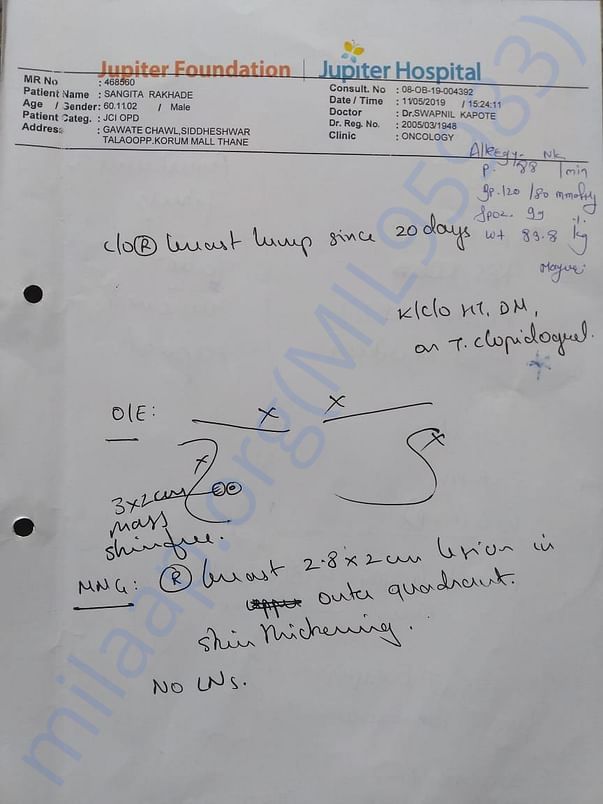 Jupiter Foundation | Jupiter Hospital
MR No : 468560
Patient Name : SANGITA RAKHADE
Age / Gender : 60.11.02 / Male
Patient Categ. : JCI OPD
Address : GAWATE CHAWL,SIDDHESHWAR
TALAOOPP.KORUM MALL THANE
Consult. No : 08-OB-19-004392
Date / Time : 11/05/2019 / 15:24:11
Doctor : Dr.SWAPNIL KAPOTE
Dr. Reg. No. : 2005/03/1948
Clinic : ONCOLOGY
Allergy- NK
P. 88 /min
Bp. 120 /80 mmHg
Spo2. 99 %
wt 83.8 kg
c/o Ⓡ breast lump since 20 days
K/c/o HT, DM,
on T. clopidogrel.
O/E: x x
x x
3x2cm
mass
skin free.
MMG: Ⓡ breast 2.8 x 2 cm lesion in
outer quadrant.
skin thickening.
NO LNs.
milaap.org(MIL95983)